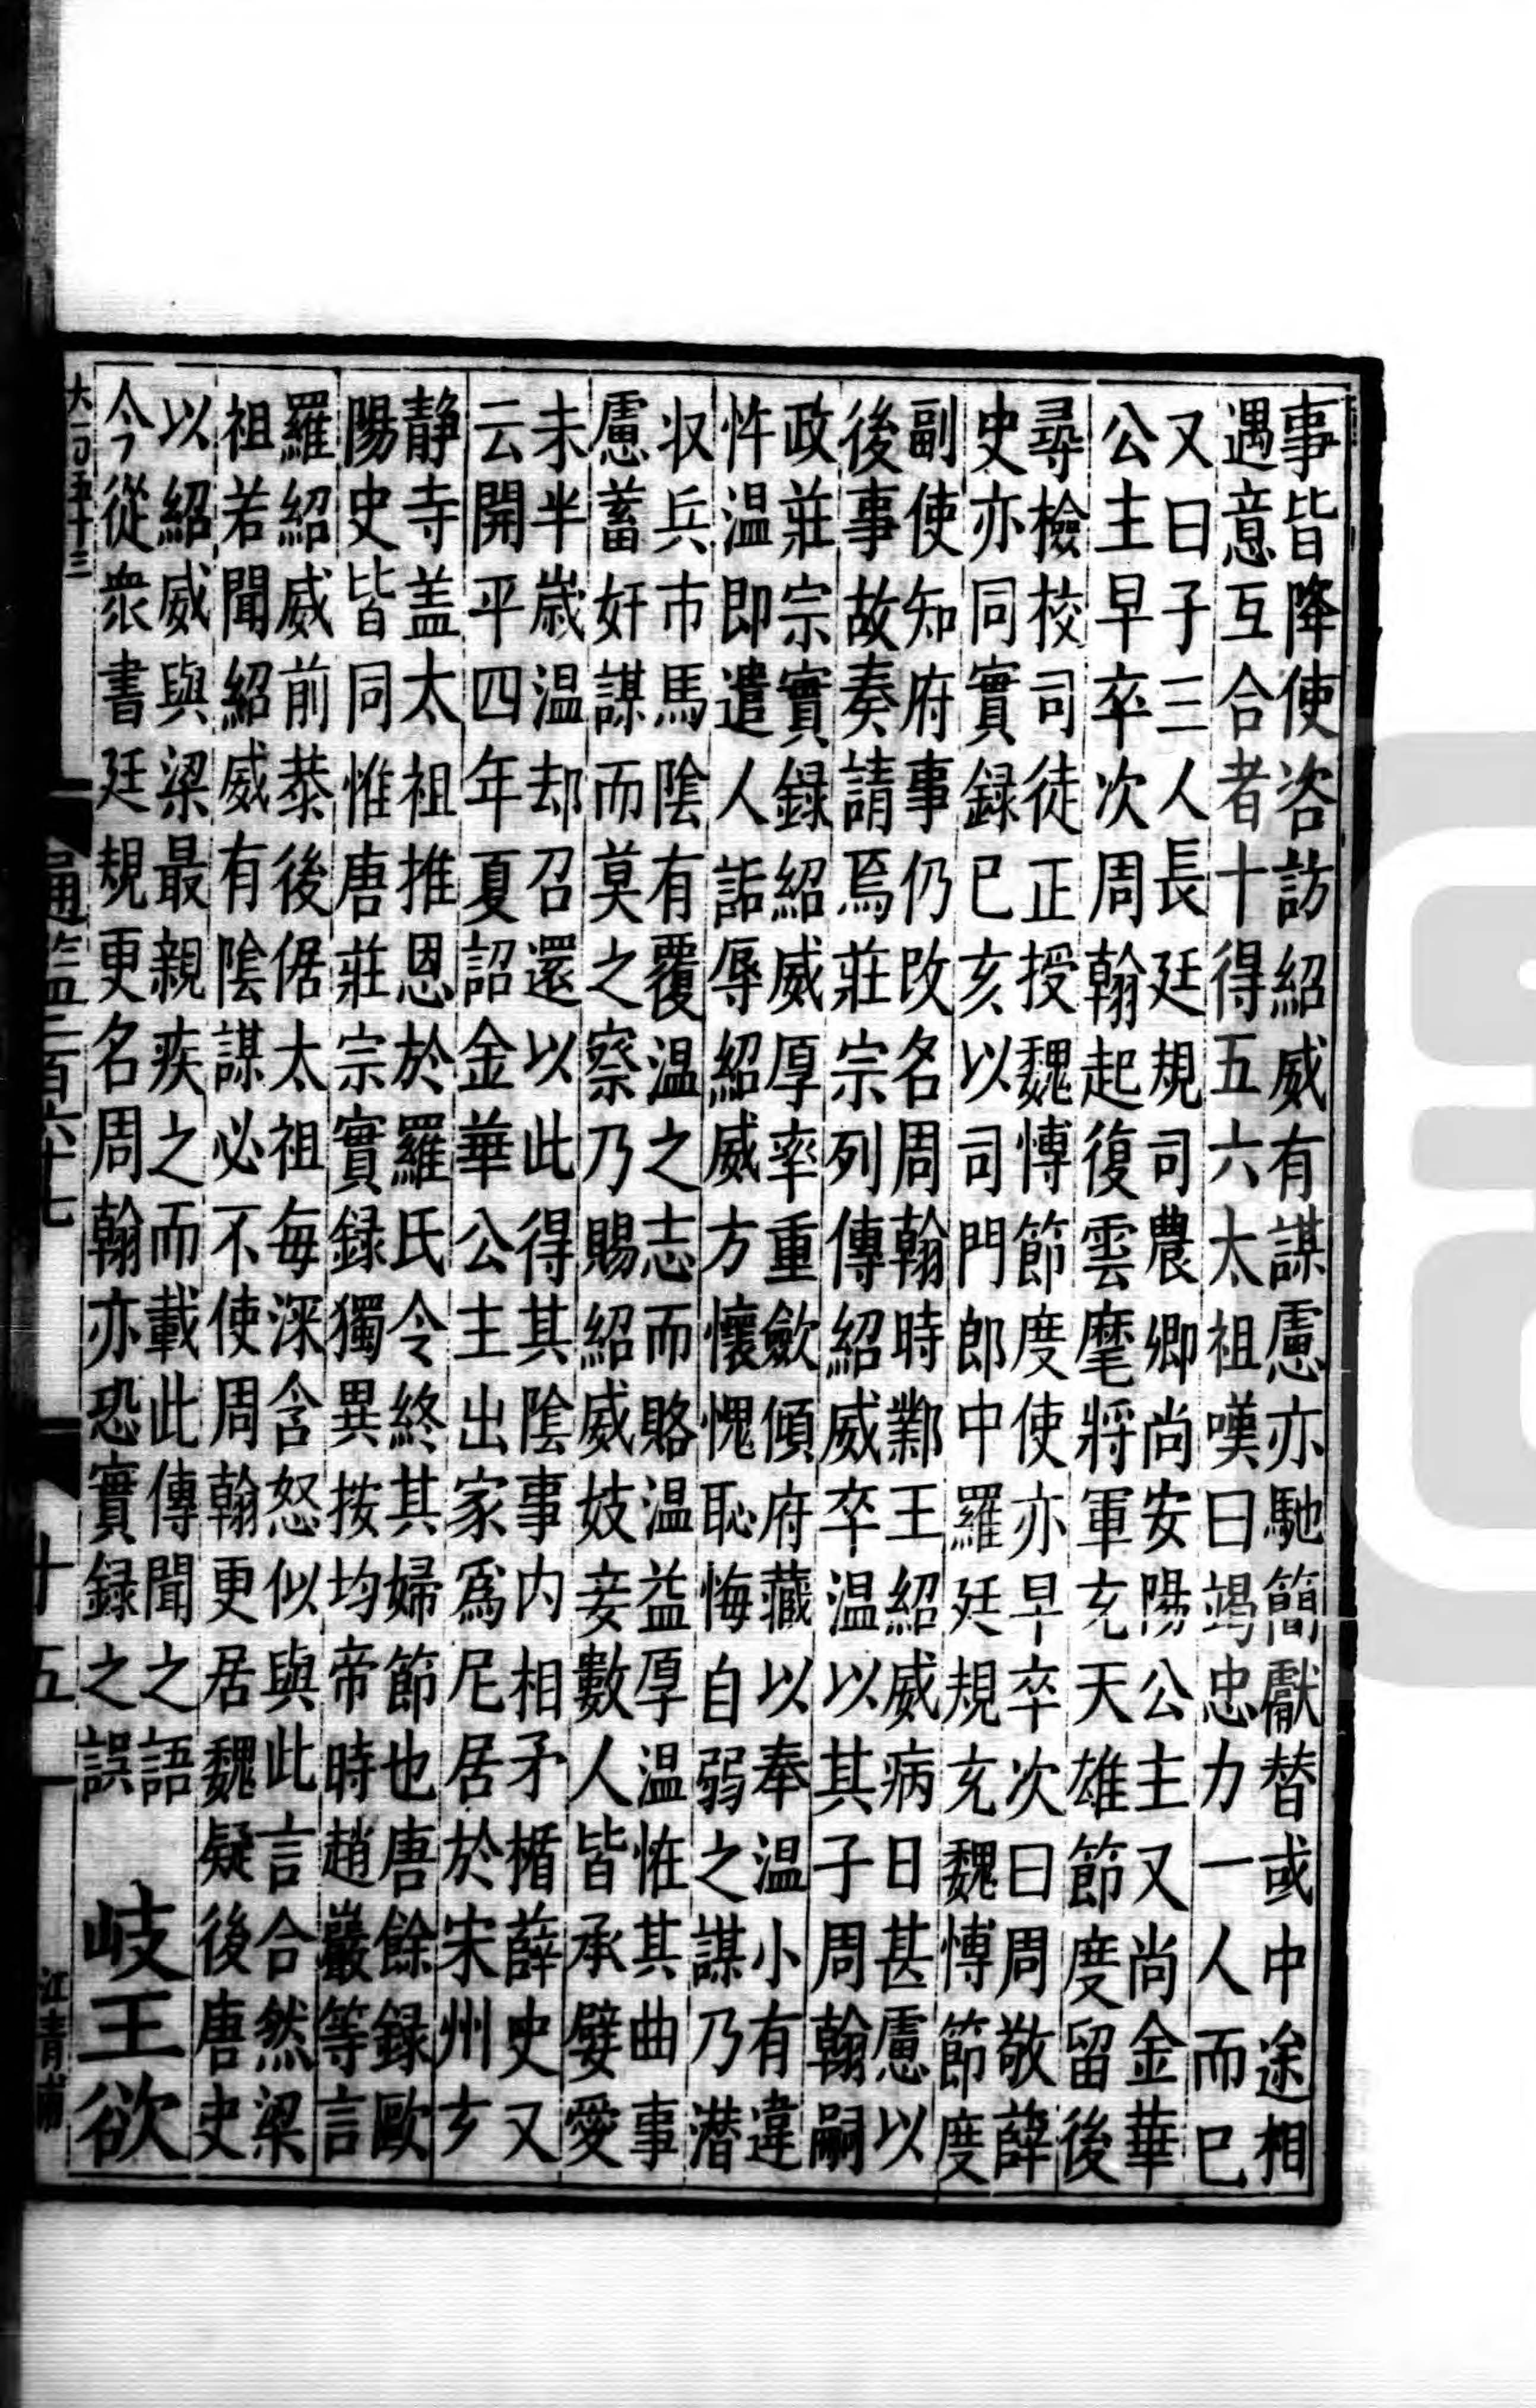 事皆降使咨訪紹威有謀慮亦馳簡獻替或中途相
遇意互合者十得五六太祖嘆曰竭忠力一人而已
又曰子三人長廷規司農卿尚安陽公主又尚金華
公主早卒次周翰起復雲麾將軍充天雄節度留後
尋檢校司徒正授魏博節度使亦早卒次曰周敬薛
史亦同實録己亥以司門郎中羅廷規充魏博節度
副使知府事仍改名周翰時鄴王紹威病日甚慮以
後事故奏請焉莊宗列傳紹威卒温以其子周翰嗣
政莊宗實録紹威厚率重斂傾府藏以奉温小有違
忤温即遣人詬辱紹威方懷愧恥悔自弱之謀乃潜
收兵市馬陰有覆温之志而賂温益厚温恠其曲事
慮蓄奸謀而莫之察乃賜紹威妓妾數人皆承嬖愛
未半歳温却召還以此得其陰事内相矛楯薛史又
云開平四年夏詔金華公主出家爲尼居於宋州玄
静寺盖太祖推恩於羅氏令終其婦節也唐餘録歐
陽史皆同惟唐莊宗實録獨異按均帝時趙巖等言
羅紹威前恭後倨太祖每深含怒似與此言合然梁
祖若聞紹威有陰謀必不使周翰更居魏疑後唐史
以紹威與梁最親疾之而載此傳聞之語
今從衆書廷規更名周翰亦恐實録之誤
岐王欲
大一百五十三
通監二百六十七
十五
江青甫